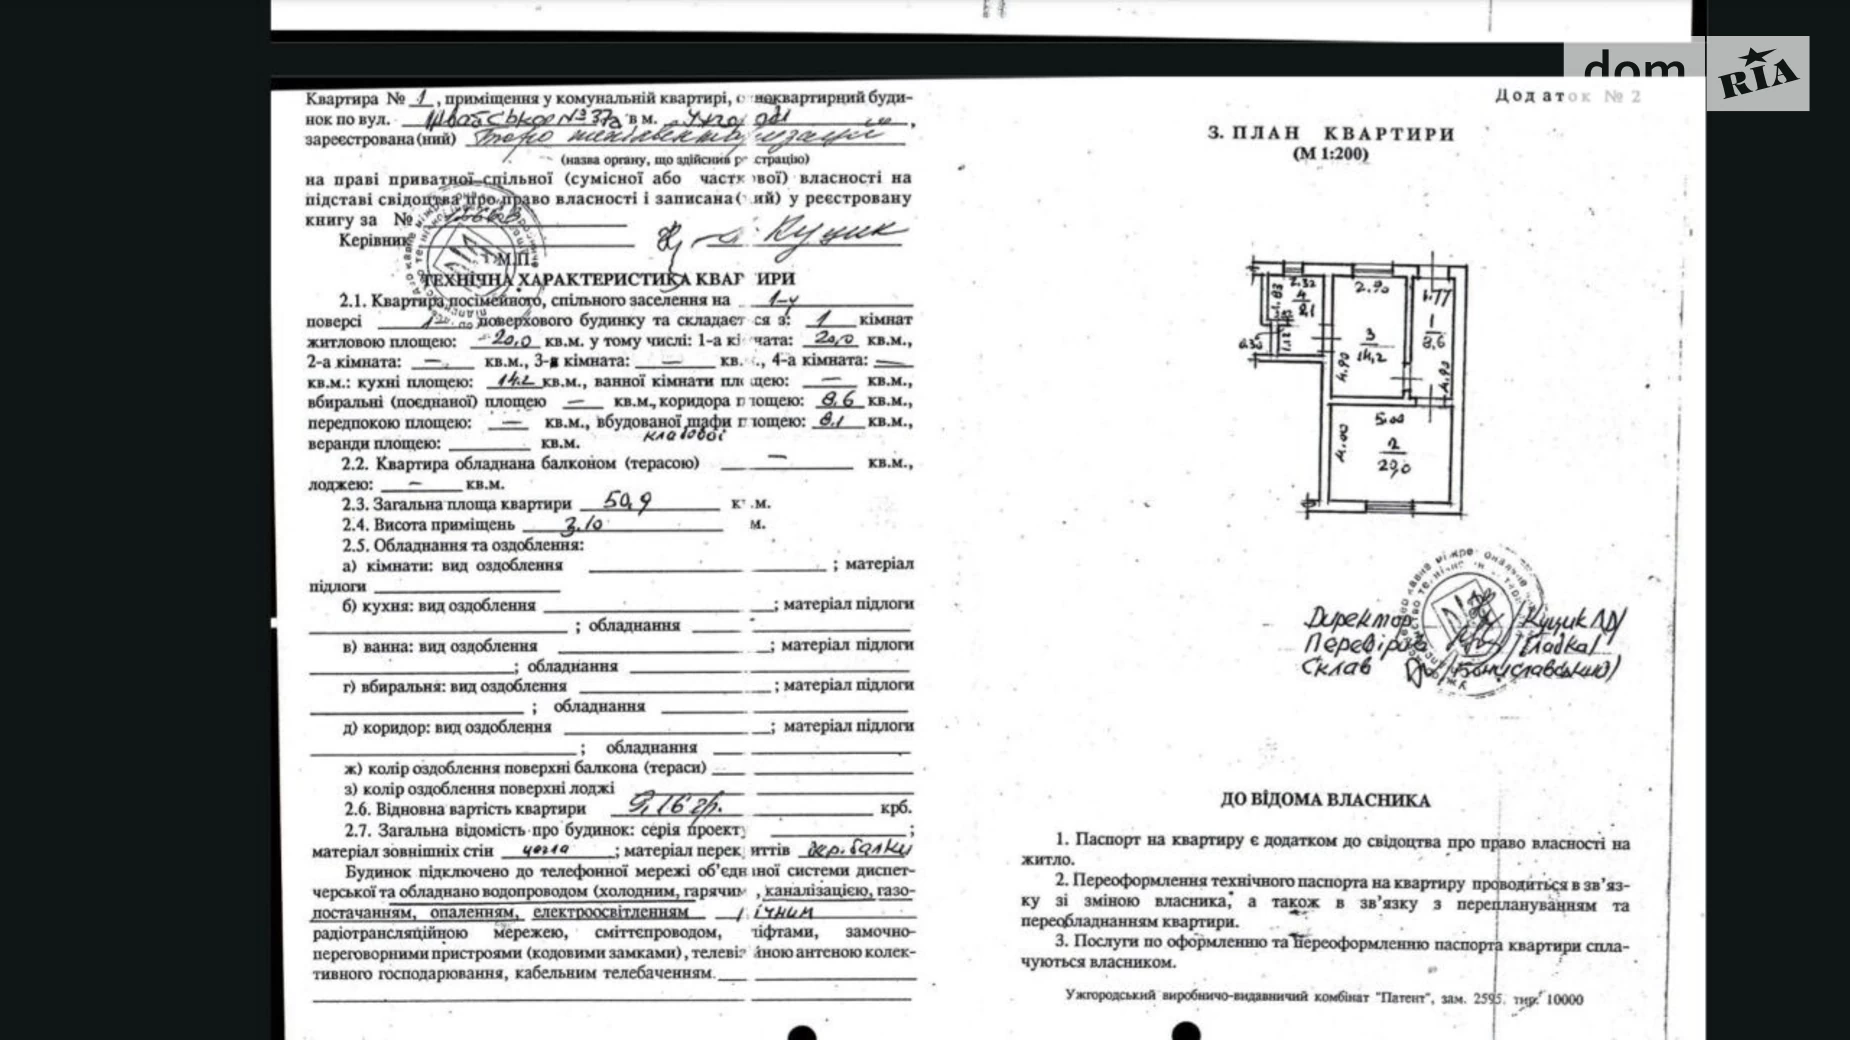 dom RIA
Квартира № 1, приміщення у комунальній квартирі, одноквартирний буди-
нок по вул. № 37а в м.
зареєстрована (ний) Бюро
(назва органу, що здійснив реєстрацію)
на праві приватної спільної (сумісної або часткової) власності на
підставі свідоцтва про право власності і записана (ий) у реєстровану
книгу за №
Керівник Куцик
М.П.
ТЕХНІЧНА ХАРАКТЕРИСТИКА КВАРТИРИ
2.1. Квартира посімейного, спільного заселення на 1-у
поверсі 1 поверхового будинку та складається з: 1 кімнат
житловою площею: 20,0 кв.м. у тому числі: 1-а кімната: 20,0 кв.м.,
2-а кімната: — кв.м., 3-я кімната: — кв.м., 4-а кімната: —
кв.м.: кухні площею: 14.2 кв.м., ванної кімнати площею: — кв.м.,
вбиральні (поєднаної) площею — кв.м., коридора площею: 8,6 кв.м.,
передпокою площею: — кв.м., вбудованої шафи площею: 8.1 кв.м.,
кладової
веранди площею: кв.м.
2.2. Квартира обладнана балконом (терасою) — кв.м.,
лоджею: — кв.м.
2.3. Загальна площа квартири 50,9 кв.м.
2.4. Висота приміщень 3.10 м.
2.5. Обладнання та оздоблення:
а) кімнати: вид оздоблення ; матеріал
підлоги
б) кухня: вид оздоблення ; матеріал підлоги
; обладнання
в) ванна: вид оздоблення ; матеріал підлоги
; обладнання
г) вбиральня: вид оздоблення ; матеріал підлоги
; обладнання
д) коридор: вид оздоблення ; матеріал підлоги
; обладнання
ж) колір оздоблення поверхні балкона (тераси)
з) колір оздоблення поверхні лоджі
2.6. Відновна вартість квартири крб.
2.7. Загальна відомість про будинок: серія проекту ;
матеріал зовнішніх стін цегла ; матеріал перекриттів дер. балки
Будинок підключено до телефонної мережі об’єднаної системи диспет-
черської та обладнано водопроводом (холодним, гарячим, каналізацією, газо-
постачанням, опаленням, електроосвітленням
радіотрансляційною мережею, сміттєпроводом, ліфтами, замочно-
переговорними пристроями (кодовими замками), телевізійною антеною колек-
тивного господарювання, кабельним телебаченням.
Додаток № 2
3. ПЛАН КВАРТИРИ
(М 1:200)
2.32
1.83
4
8,1
0.35
2.90
3
14,2
4.90
1.77
1
8,6
4.90
5.00
4.00
2
20,0
Директор /Куцик
Перевірив /Гладка/
Склав
ДО ВІДОМА ВЛАСНИКА
1. Паспорт на квартиру є додатком до свідоцтва про право власності на
житло.
2. Переоформлення технічного паспорта на квартиру проводиться в зв’яз-
ку зі зміною власника, а також в зв’язку з переплануванням та
переобладнанням квартири.
3. Послуги по оформленню та переоформленню паспорта квартири спла-
чуються власником.
Ужгородський виробничо-видавничий комбінат "Патент", зам. 2595. тир. 10000